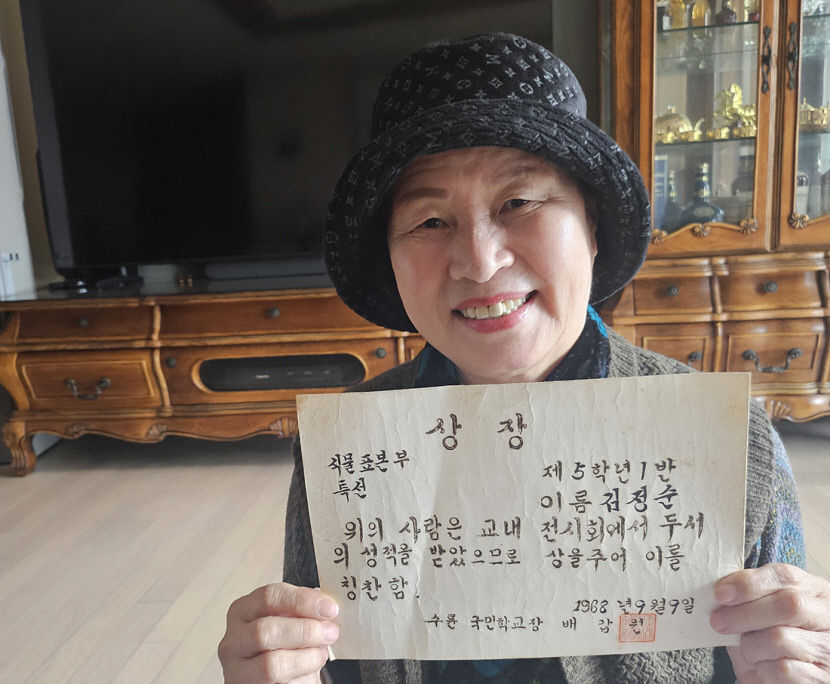 상 장
식물표본부
특선
제 5학년 1반
이름 김정순
위의 사람은 교내 전시회에서 두서
의 성적을 받았으므로 상을주어 이를
칭찬함.
1968년 9월 9일
수륜 국민학교장 배 갑